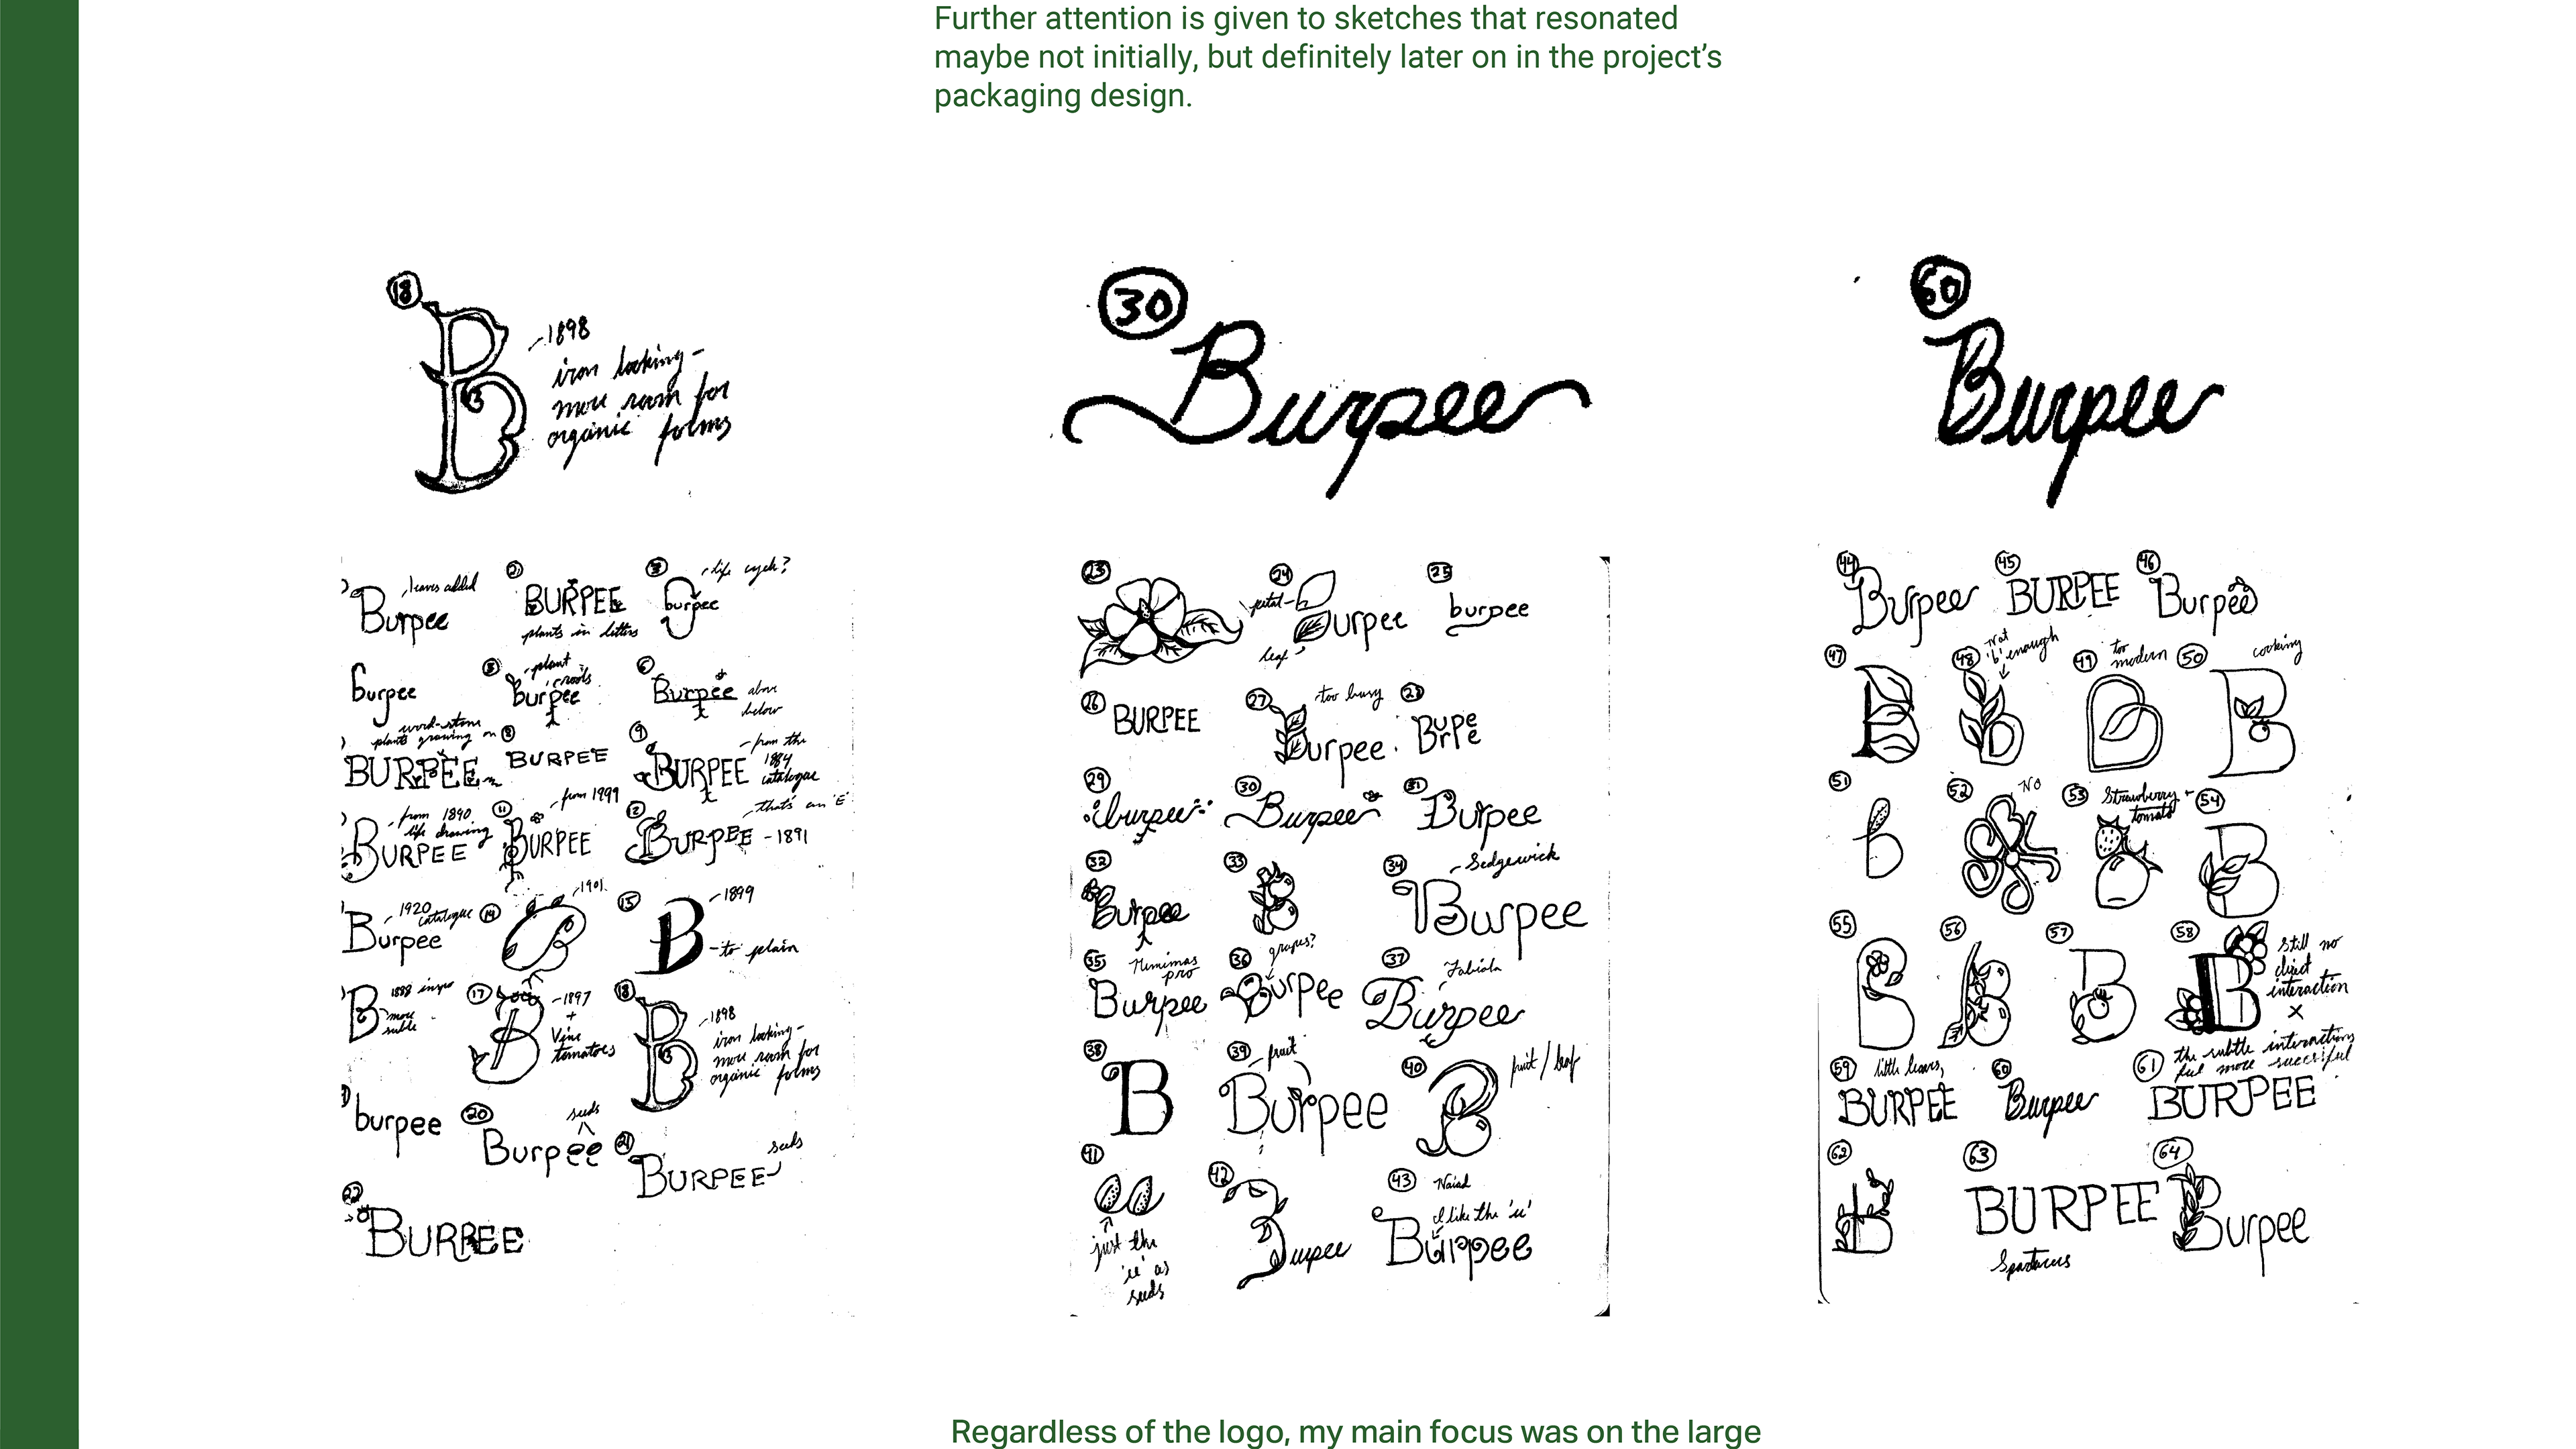 Further attention is given to sketches that resonated
maybe not initially, but definitely later on in the project’s
packaging design.
18
-1898
iron looking -
more room for
organic forms
30
Burpee
60
Burpee
leaves added
Burpee
2
BURPEE
plants in letters
3
life cycle?
burpee
burpee
5
-plant
roots
burpee
6
Burpee
above
below
plants growing on
BURPEE
8
BURPEE
9
BURPEE
-from the
1884
catalogue
-from 1890
life drawing
BURPEE
11
-from 1999
BURPEE
BURPEE
-1891
that's an 'E'
-1920
catalogue
Burpee
14
-1901
B
15
B
-1899
-to plain
B
1888
more
subtle
17
B
-1897
+
Vine
tomatoes
18
B
-1898
iron looking -
more room for
organic forms
burpee
20
seeds
Burpee
21
seeds
BURPEE
22
BURPEE
23
24
petal-
leaf
urpee
25
burpee
26
BURPEE
27
-too busy
Burpee
28
29
burpee
30
Burpee
31
Burpee
32
Burpee
33
B
34
-Sedgewick
Burpee
35
pro
Burpee
36
grapes?
Burpee
37
Burpee
38
B
39
-fruit
Burpee
40
B
fruit / leaf
41
just the
'ee' as
seeds
42
Burpee
43
Naiad
I like the 'u'
Burpee
44
Burpee
45
BURPEE
46
Burpee
47
B
48
Not
'b' enough
49
too
modern
50
cooking
B
51
b
52
No
53
Strawberry +
tomato
54
B
55
56
B
57
B
58
B
Still no
direct
interaction
x
59
little leaves,
BURPEE
60
Burpee
61
the subtle interactions
feel more successful
BURPEE
62
B
63
BURPEE
Spartacus
64
Burpee
Regardless of the logo, my main focus was on the large